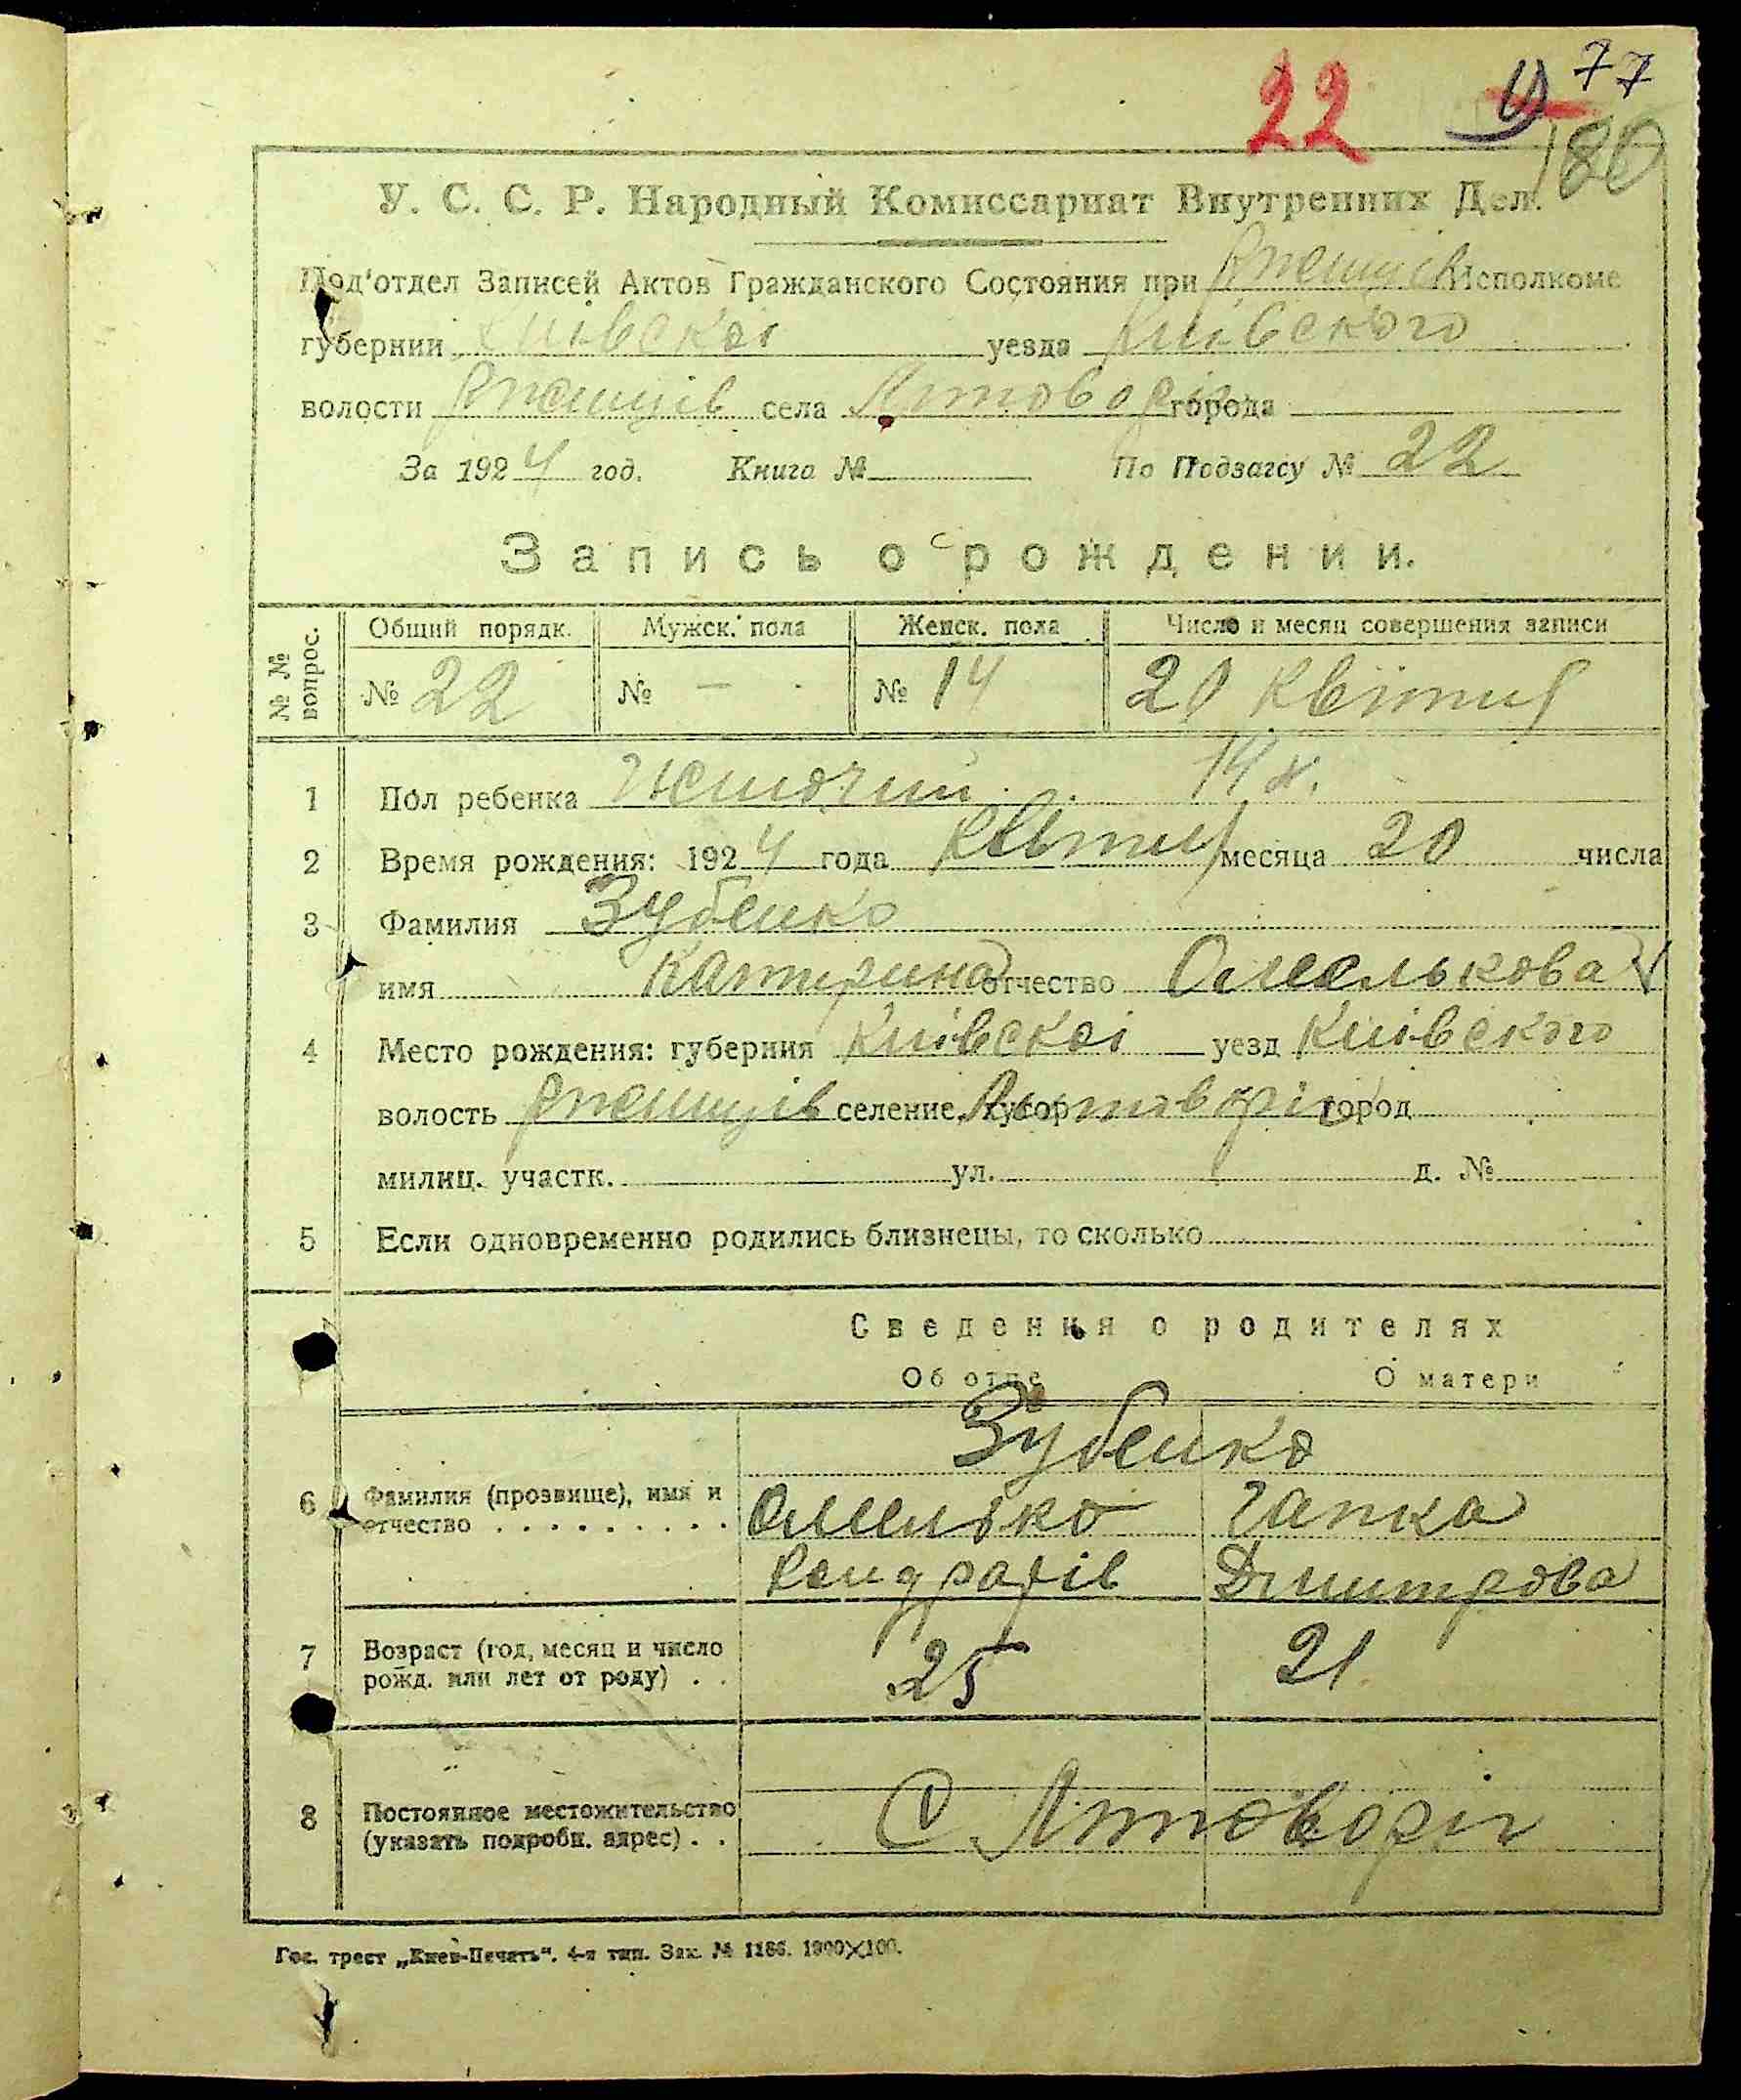 22 77
80
У. С. С. Р. Народный Комиссариат Внутренних Дел.
Под'отдел Записей Актов Гражданского Состояния при Ржищів Исполкоме
губернии Київскої уезда Київського
волости Ржищів села города
За 1924 год. Книга № По Подзагсу № 22
Запись о рождении.
№ № вопрос. Общий порядк. Мужск. пола Женск. пола Число и месяц совершения записи
№ 22 № – № 14 20 Квітня
1 Пол ребенка Жиночий 14 ж.
2 Время рождения: 1924 года Квітня месяца 20 числа
3 Фамилия Зубенко
имя Катерина отчество Омелькова
4 Место рождения: губерния Київскої уезд Київского
волость Ржищів селение, хутор город
милиц. участк. ул. д. №
5 Если одновременно родились близнецы, то сколько
Сведения о родителях
Об отце О матери
Зубенко
6 Фамилия (прозвище), имя и отчество . . . . . . . . . Омелько Гапка
Кондратів Дмитрова
7 Возраст (год, месяц и число рожд. или лет от роду) . . 25 21
8 Постоянное местожительство (указать подробн. адрес) . . С.
Гос. трест „Киев-Печать“. 4-я тип. Зак. № 1186. 1000×100.